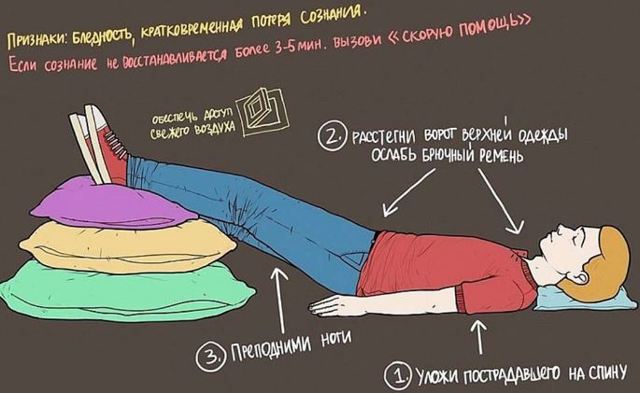 Признаки: бледность, кратковременная потеря сознания.
Если сознание не восстанавливается более 3-5 мин. вызови «скорую помощь»
обеспечь доступ
свежего воздуха
2. расстегни ворот верхней одежды
ослабь брючный ремень
3. Преподними ноги
1. Уложи пострадавшего на спину